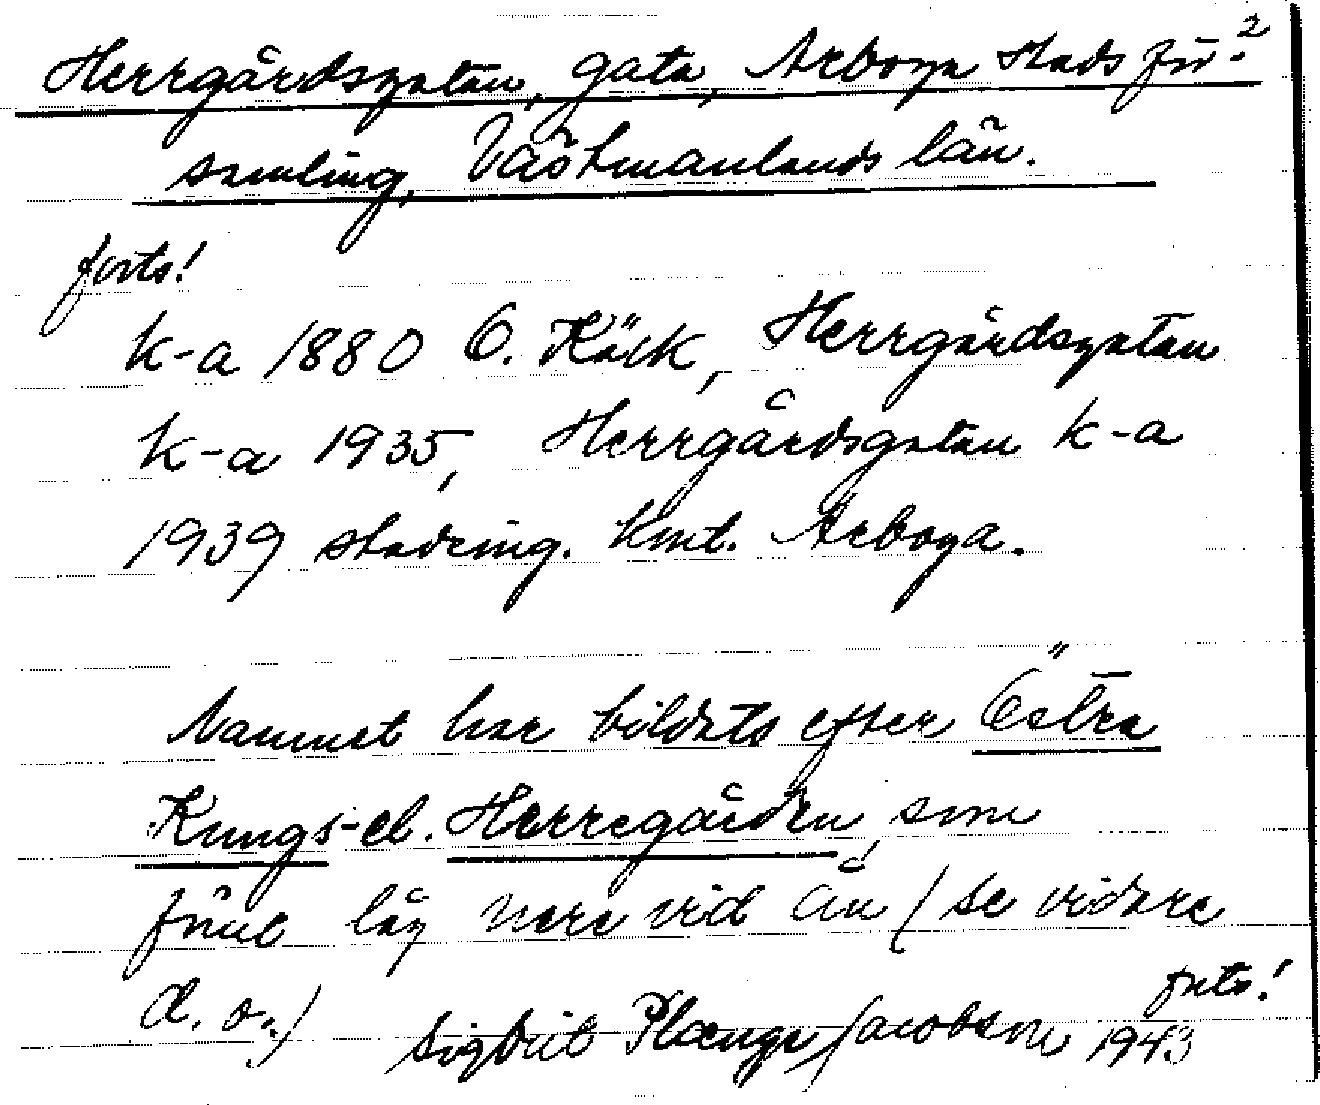 Herrgårdsgatan, gata, Arboya stads för-²
samling, Västmanlands län.
forts!
k-a 1880 O. Käck, Herrgårdsgatan
k-a 1935, Herrgårdsgatan k-a
1939 stadsing. kmt. Arboga.
Namnet har bildats efter Östra
Kungs- el. Herregården, som
förut låg nere vid ån (se vidare
d. o.)
forts!
Sigbrit Plænge Jacobson 1943